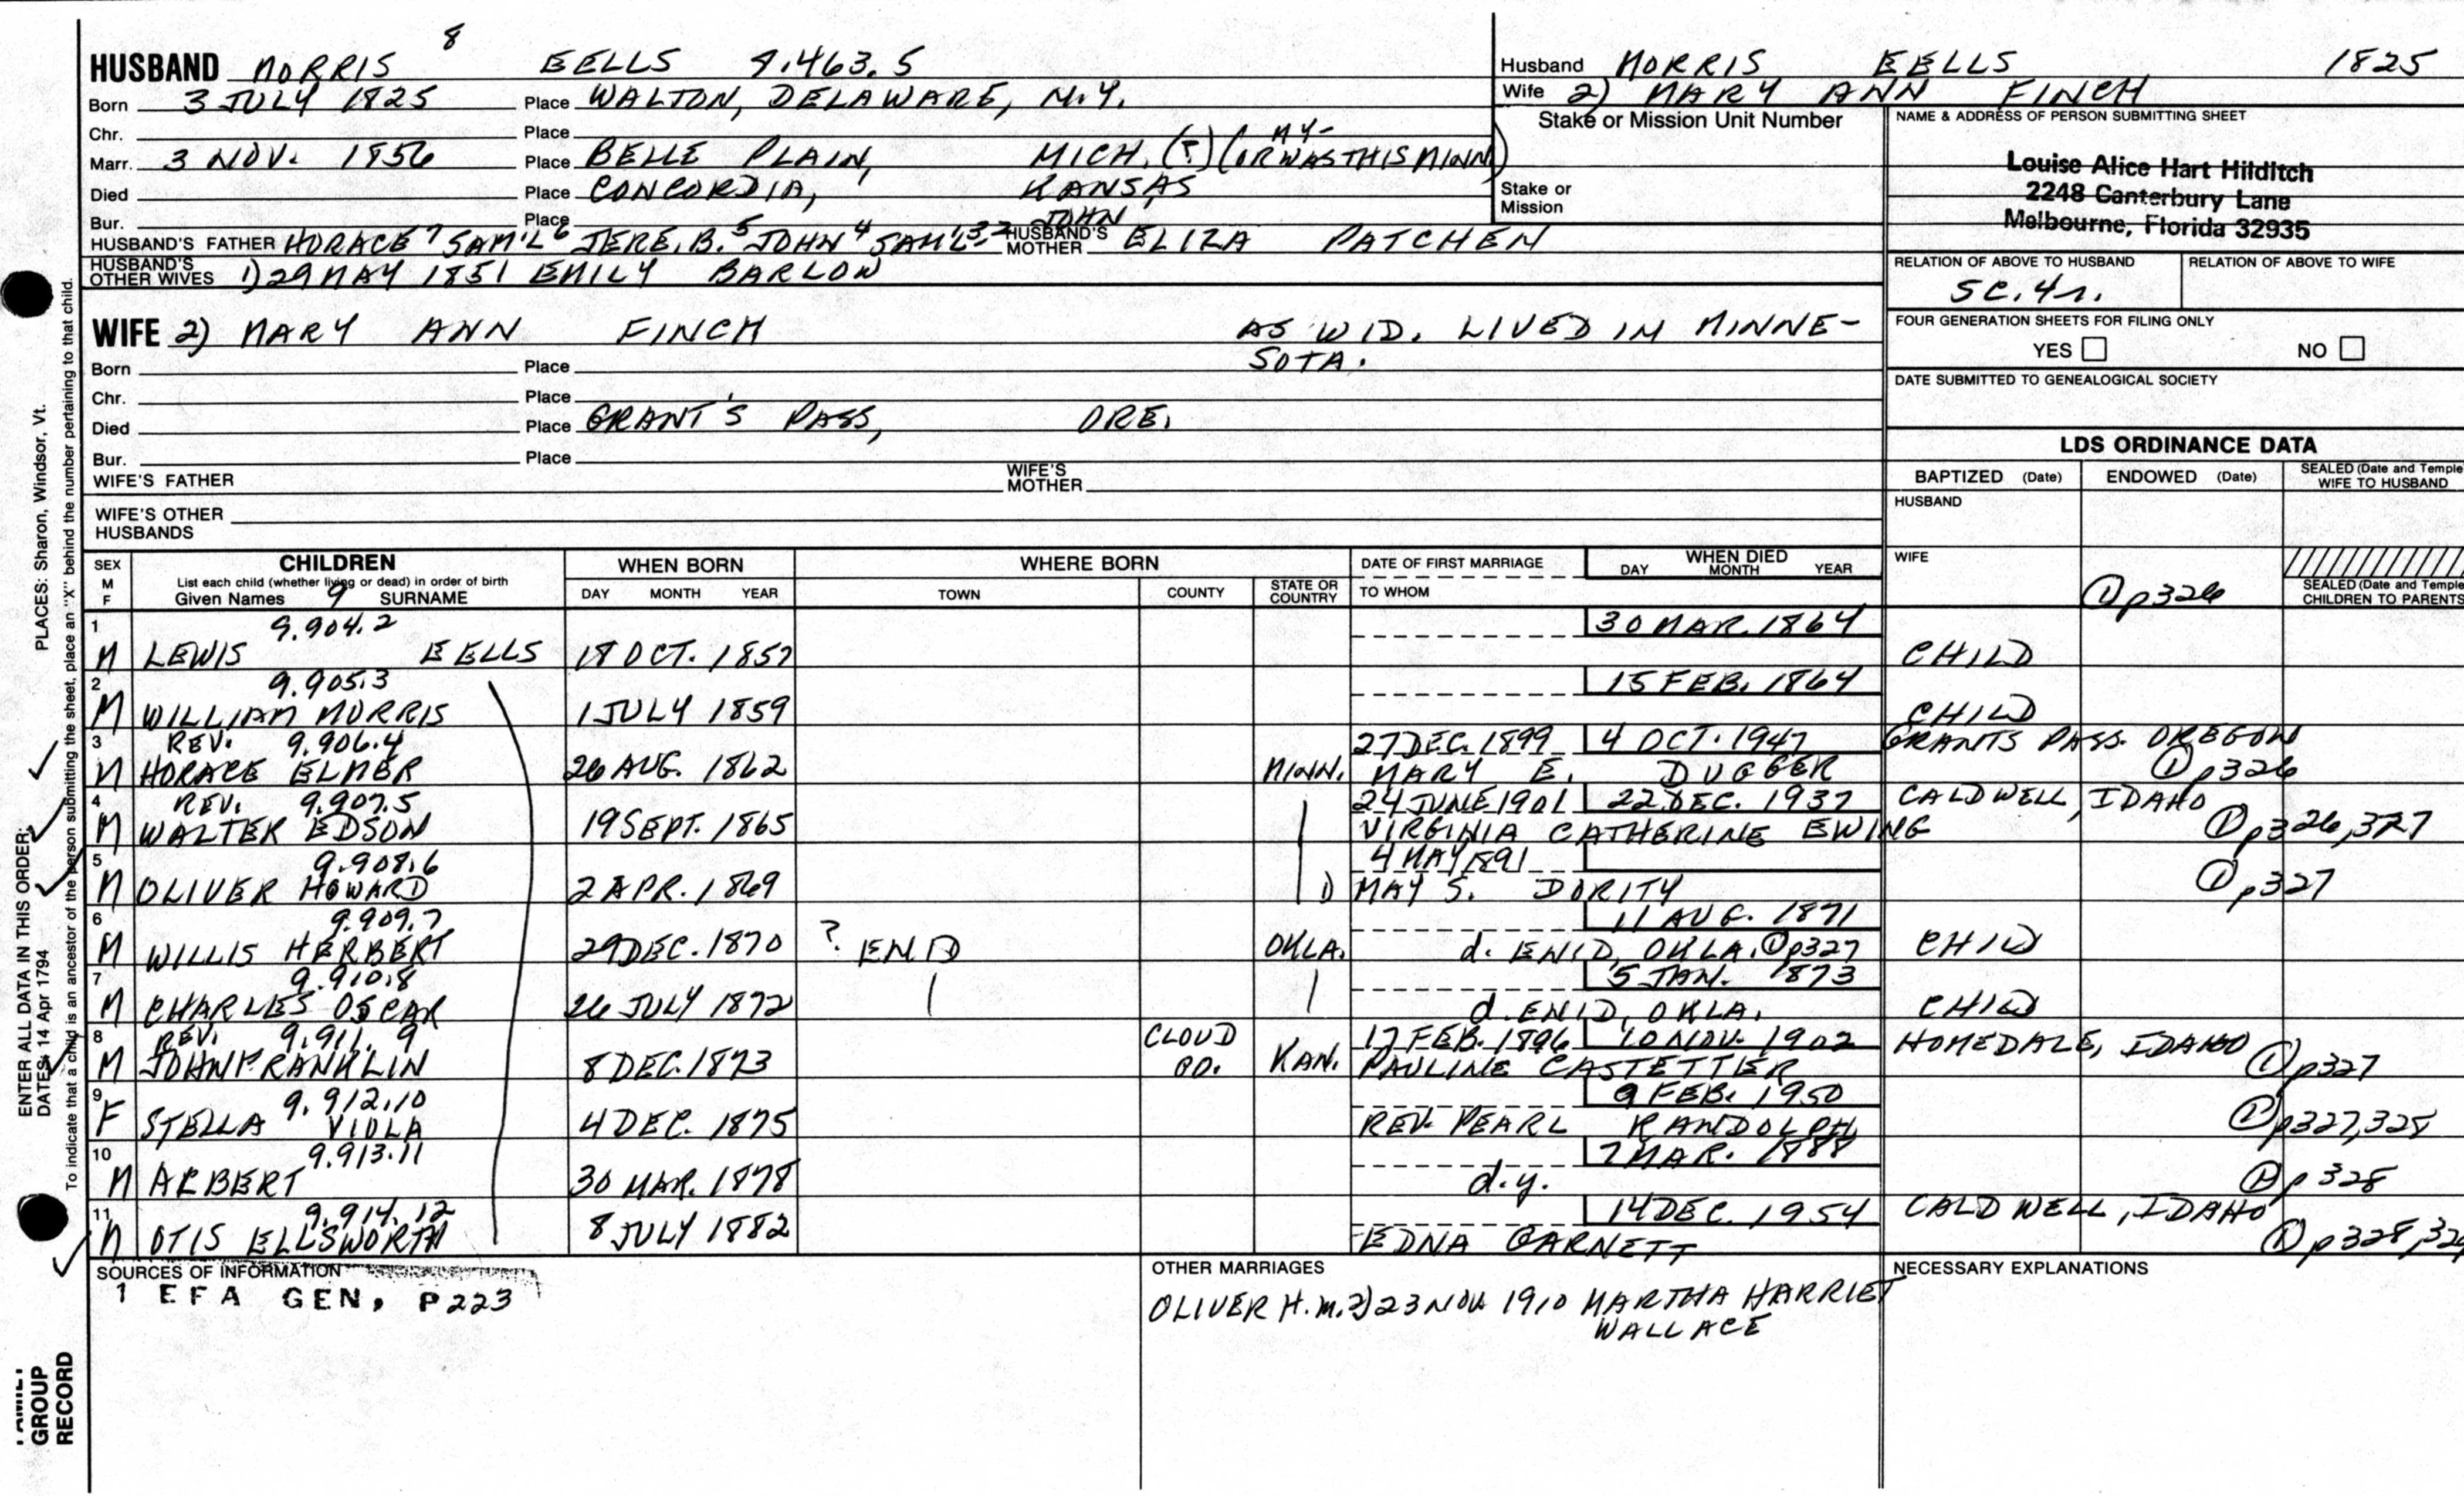 8
HUSBAND MORRIS EELLS 9.463.5
Born 3 JULY 1825 Place WALTON, DELAWARE, N.Y.
Chr. Place
Marr. 3 NOV. 1856 Place BELLE PLAIN, MICH. (?) (OR WAS THIS MINN)
Died Place CONCORDIA, KANSAS
Bur. Place
HUSBAND'S FATHER HORACE 7 SAM'L 6 JERE. B. 5 JOHN 4 SAM'L 3 JOHN 2 HUSBAND'S MOTHER ELIZA PATCHEN
HUSBAND'S OTHER WIVES 1) 29 MAY 1851 EMILY BARLOW
WIFE 2) MARY ANN FINCH AS WID. LIVED IN MINNE-
SOTA.
Born Place
Chr. Place
Died Place GRANT'S PASS, ORE.
Bur. Place
WIFE'S FATHER WIFE'S MOTHER
WIFE'S OTHER HUSBANDS
Husband MORRIS EELLS 1825
Wife 2) MARY ANN FINCH
Stake or Mission Unit Number
Stake or Mission
NAME & ADDRESS OF PERSON SUBMITTING SHEET
Louise Alice Hart Hilditch
2248 Canterbury Lane
Melbourne, Florida 32935
RELATION OF ABOVE TO HUSBAND RELATION OF ABOVE TO WIFE
5C. 4r.
FOUR GENERATION SHEETS FOR FILING ONLY
YES NO
DATE SUBMITTED TO GENEALOGICAL SOCIETY
LDS ORDINANCE DATA
BAPTIZED (Date) ENDOWED (Date) SEALED (Date and Temple
WIFE TO HUSBAND
HUSBAND
WIFE
1 p326
SEALED (Date and Temple
CHILDREN TO PARENTS
SEX M F CHILDREN WHEN BORN WHERE BORN DATE OF FIRST MARRIAGE WHEN DIED
List each child (whether living or dead) in order of birth
Given Names 9 SURNAME DAY MONTH YEAR TOWN COUNTY STATE OR COUNTRY TO WHOM DAY MONTH YEAR
1 9.904.2 30 MAR. 1864
M LEWIS EELLS 18 OCT. 1857 CHILD
2 9.905.3 15 FEB. 1864
M WILLIAM MORRIS 1 JULY 1859 CHILD
3 REV. 9.906.4 27 DEC. 1899 4 OCT. 1947 GRANTS PASS. OREGON
M HORACE ELMER 26 AUG. 1862 MINN. MARY E. DUGGER 1 p326
4 REV. 9.907.5 24 JUNE 1901 22 DEC. 1937 CALDWELL, IDAHO
M WALTER EDSON 19 SEPT. 1865 VIRGINIA CATHERINE EWING 1 p326,327
5 9.908.6 4 MAY 1891
M OLIVER HOWARD 2 APR. 1869 MAY S. DORITY 1 p327
6 9.909.7 11 AUG. 1871
M WILLIS HERBERT 29 DEC. 1870 ? ENID OKLA. d. ENID, OKLA. 1 p327 CHILD
7 9.910.8 5 JAN. 1873
M CHARLES OSCAR 26 JULY 1872 d. ENID, OKLA. CHILD
8 REV. 9.911.9 CLOUD 17 FEB. 1896 10 NOV. 1902 HOMEDALE, IDAHO
M JOHN FRANKLIN 8 DEC. 1873 CO. KAN. PAULINE CASTETTER 1 p327
9 9.912.10 9 FEB. 1950
F STELLA VIOLA 4 DEC. 1875 REV. PEARL RANDOLPH 1 p327,328
10 9.913.11 7 MAR. 1888
M ALBERT 30 MAR. 1878 d.y. 1 p 328
11 9.914.12 14 DEC. 1954 CALDWELL, IDAHO
M OTIS ELLSWORTH 8 JULY 1882 EDNA GARNETT 1 p328,
SOURCES OF INFORMATION OTHER MARRIAGES NECESSARY EXPLANATIONS
1 EFA GEN, P223
OLIVER H. m. 2) 23 NOV 1910 MARTHA HARRIET
WALLACE
ENTER ALL DATA IN THIS ORDER:
DATES: 14 Apr 1794 PLACES: Sharon, Windsor, Vt.
To indicate that a child is an ancestor of the person submitting the sheet, place an "X" behind the number pertaining to that child.
FAMILY
GROUP
RECORD